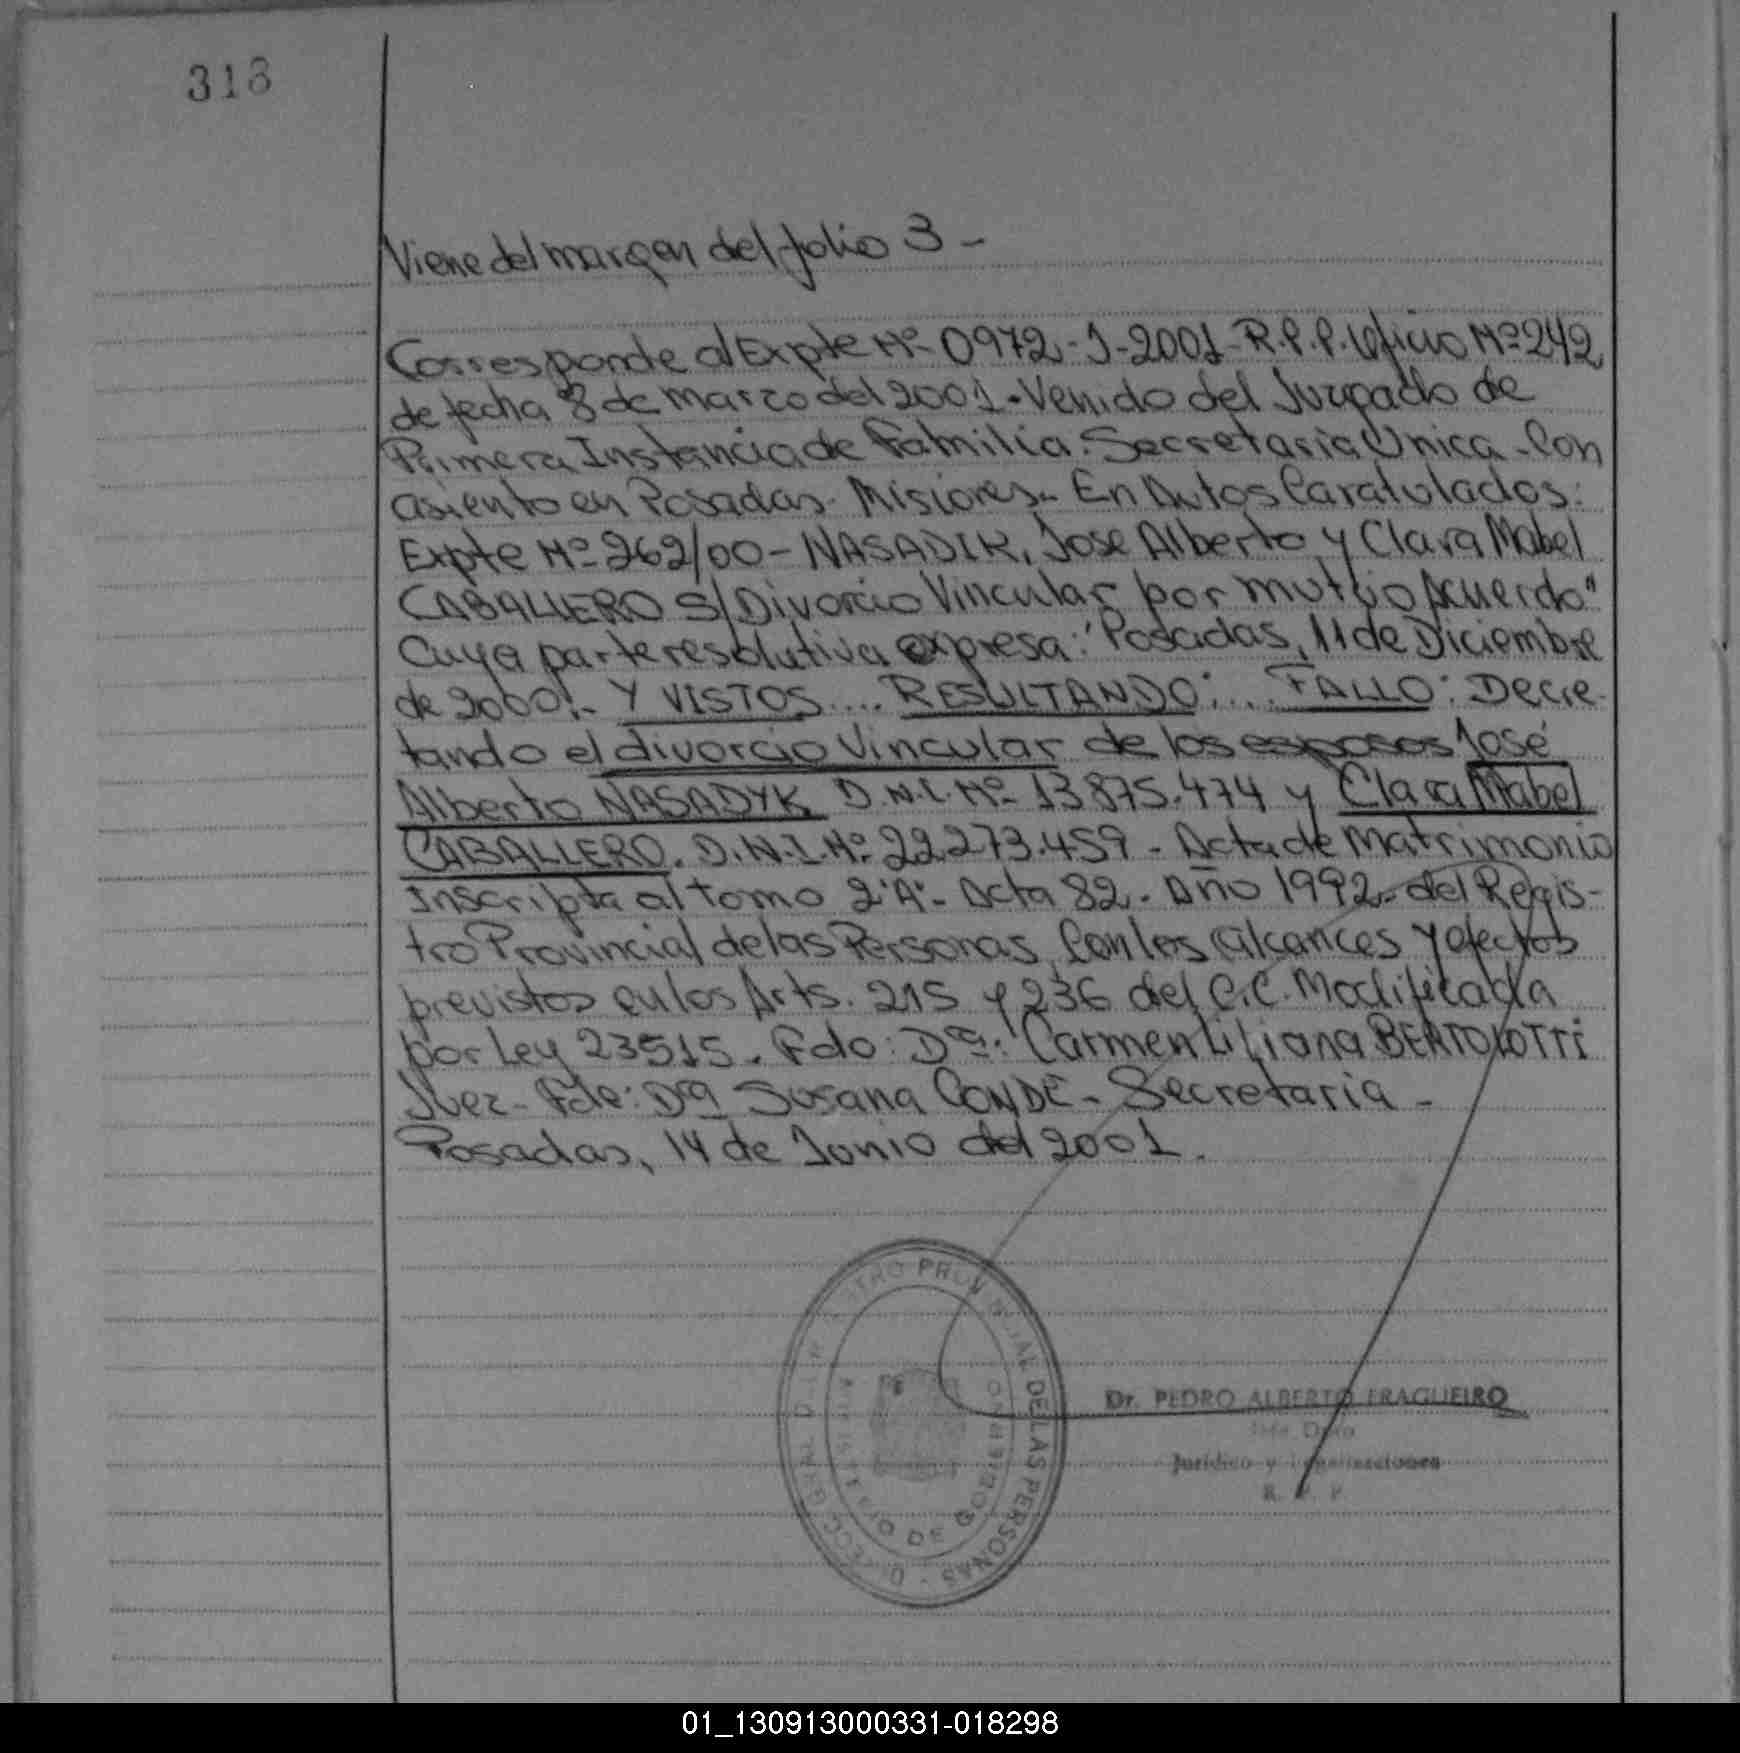 318
Viene del margen del folio 3 -
Corresponde al Expte Nº 0972-J-2001-R.P.P. Oficio Nº 242
de fecha 8 de marzo del 2001. Venido del Juzgado de
Primera Instancia de Familia. Secretaria Unica - Con
asiento en Posadas. Misiones. En Autos Caratulados:
Expte Nº 262/00 - NASADIK, Jose Alberto y Clara Mabel
CABALLERO S/Divorcio Vincular por mutuo Acuerdo"
Cuya parte resolutiva expresa: "Posadas, 11 de Diciembre
de 2000.- Y VISTOS.... RESULTANDO:... FALLO: Decre-
tando el divorcio Vincular de los esposos José
Alberto NASADYK D.N.I. Nº 13.875.474 y Clara Mabel
CABALLERO. D.N.I. Nº 22.273.459 - Acta de Matrimonio
Inscripta al tomo 2ºAº- Acta 82. Año 1992. del Regis-
tro Provincial de las Personas, Con los alcances y efectos
previstos en los Arts. 215 y 236 del C.C. Modificada
por Ley 23515. Fdo: Dra: Carmen Liliana BERTOLOTTI
Juez - Fdo: Dra Susana CONDE - Secretaria -
Posadas, 14 de Junio del 2001.
PROVINCIAL DE LAS PERSONAS
MINISTERIO DE GOBIERNO
Dr. PEDRO ALBERTO FRAGUEIRO
Jurídico y
R. P. P.
01_130913000331-018298